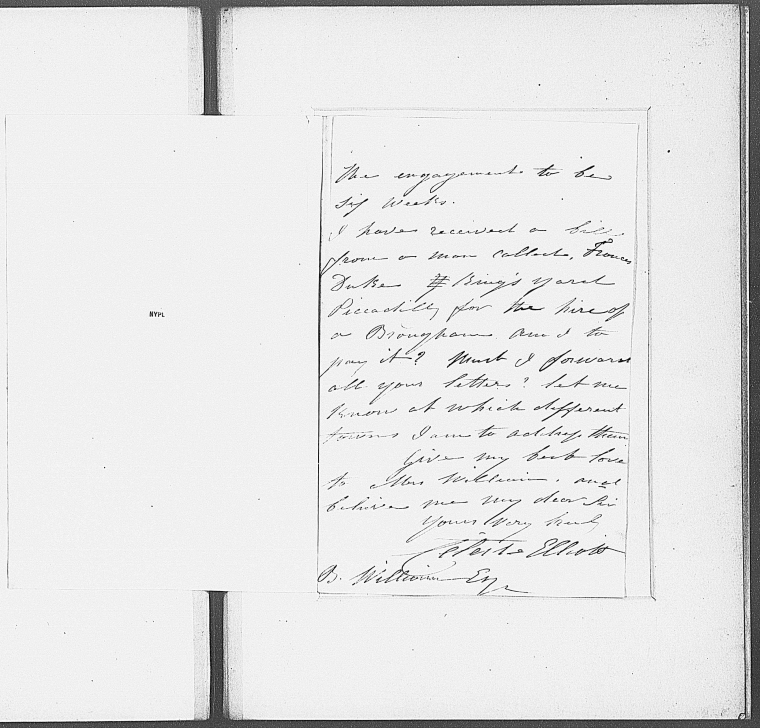 The engagement to be
six weeks.
I have received a bill
from a man called, Frances
Duke # King's Yard
Piccadilly for the hire of
a Brougham am I to
pay it? Must I forward
all your letters? let me
know at which different
towns I am to address them
Give my best love
to Mrs William. and
believe me my dear Sir
Yours very truly
Celeste Elliott
B. William Esq
NYPL